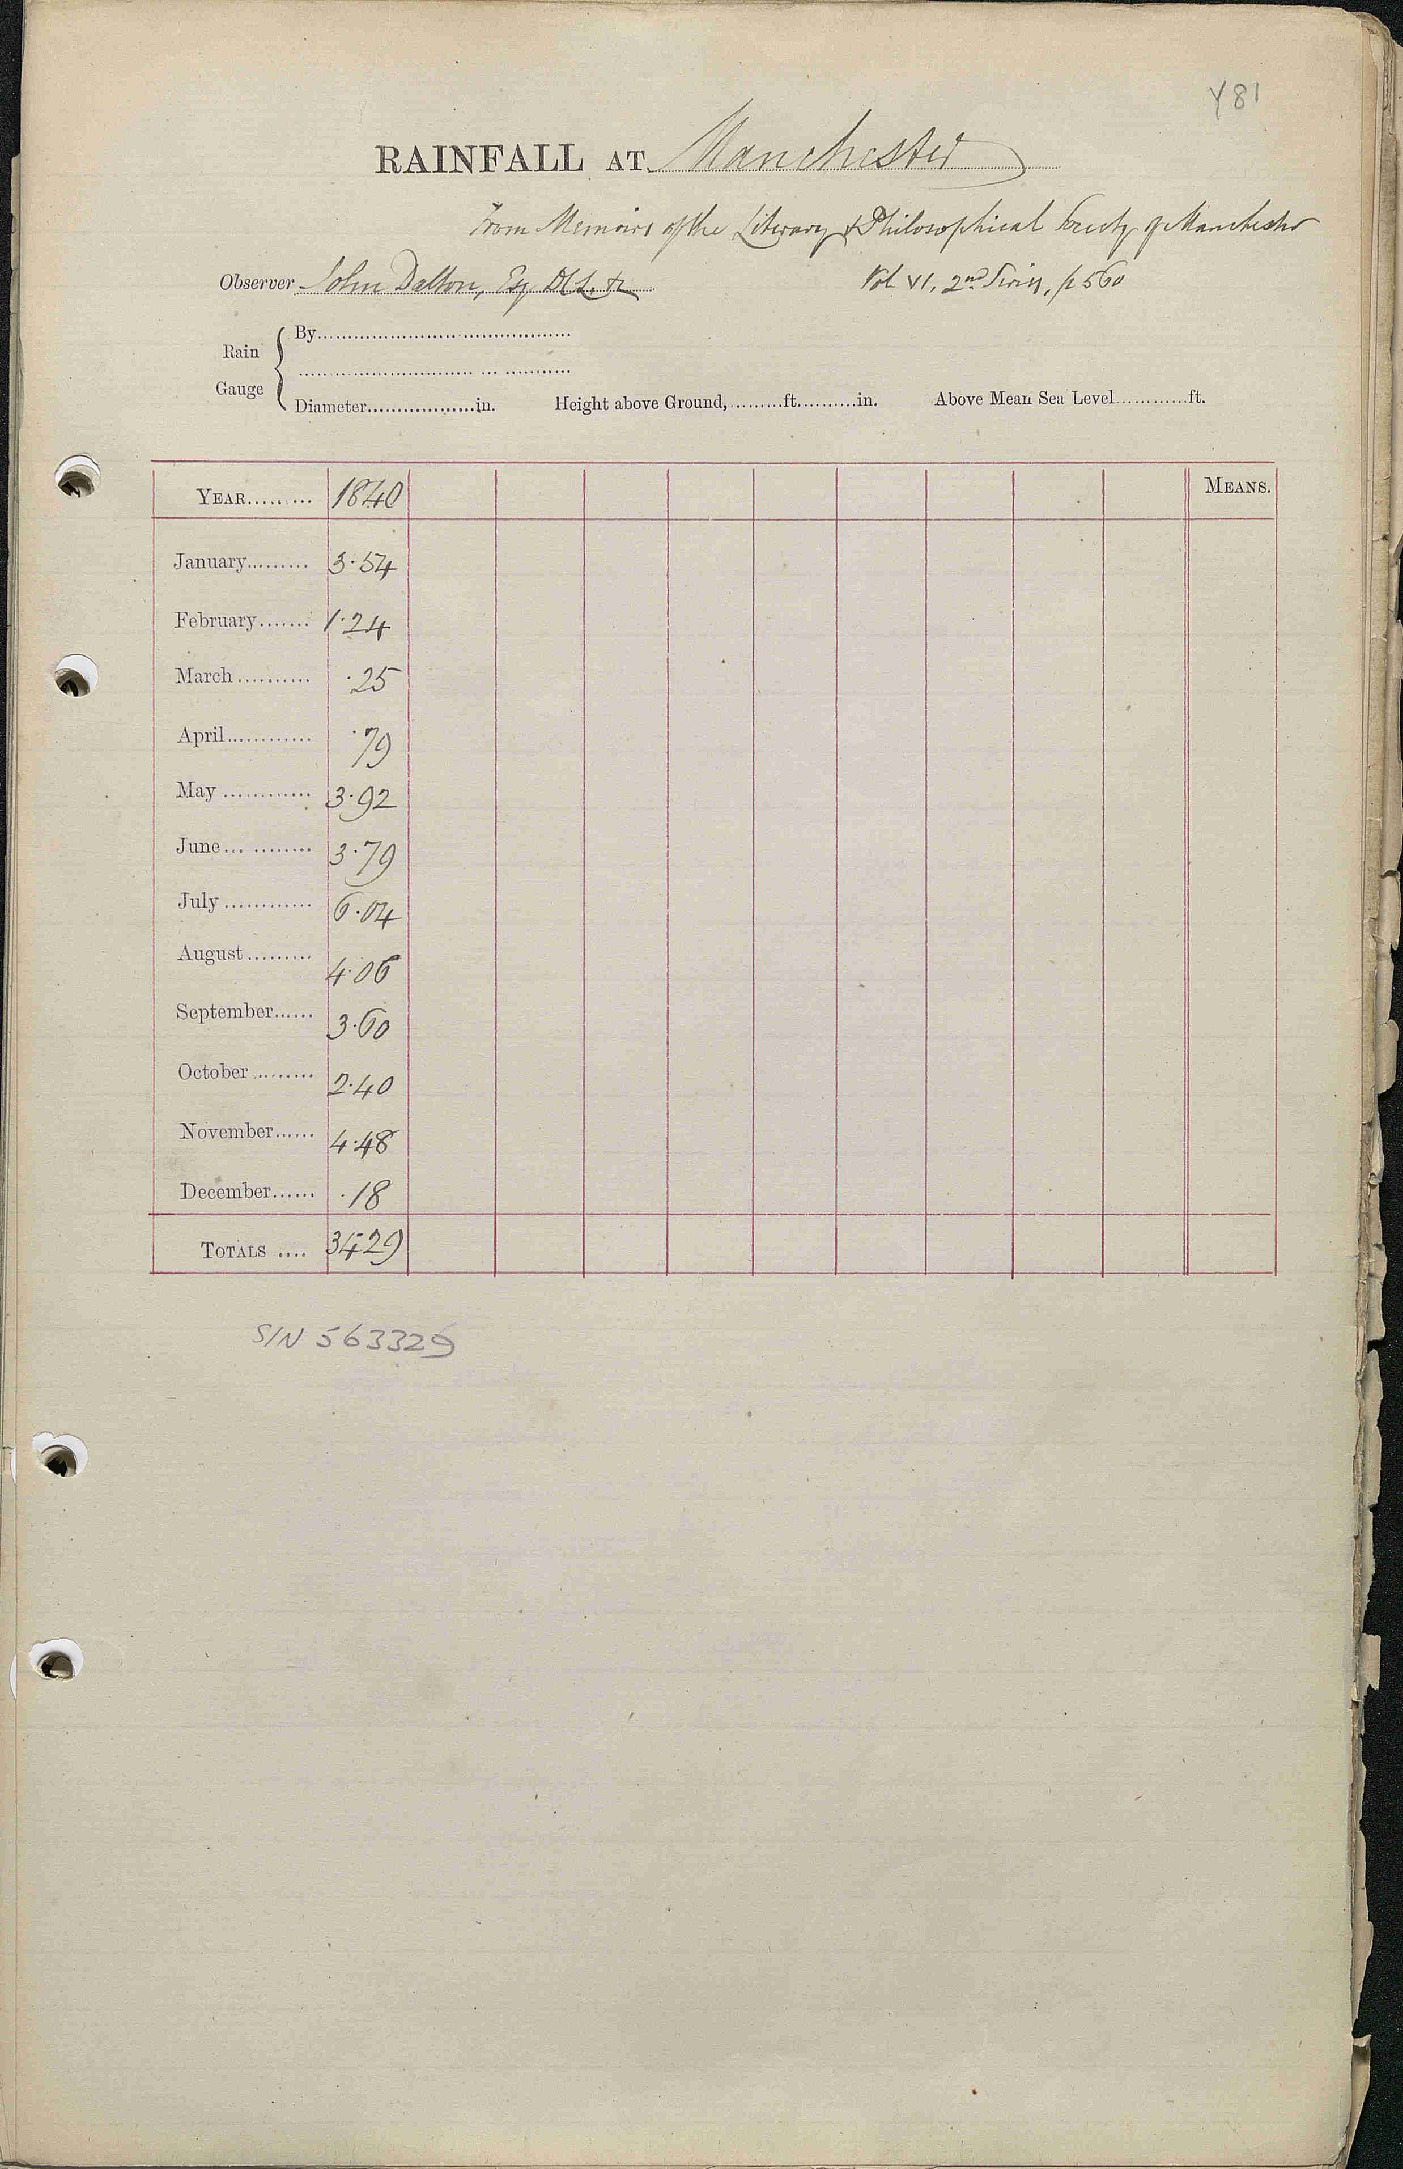 Y81
RAINFALL AT Manchester
From Memoirs of the Literary & Philosophical Society of Manchester
Observer John Dalton, Esq D.C.L. &c
Vol VI, 2nd Series, p 560
Rain Gauge
By
Diameter in. Height above Ground, ft. in. Above Mean Sea Level ft.
YEAR 1840 MEANS.
January 3.54
February 1.24
March .25
April .79
May 3.92
June 3.79
July 6.04
August 4.06
September 3.60
October 2.40
November 4.48
December .18
TOTALS 34.29
S/N 563329